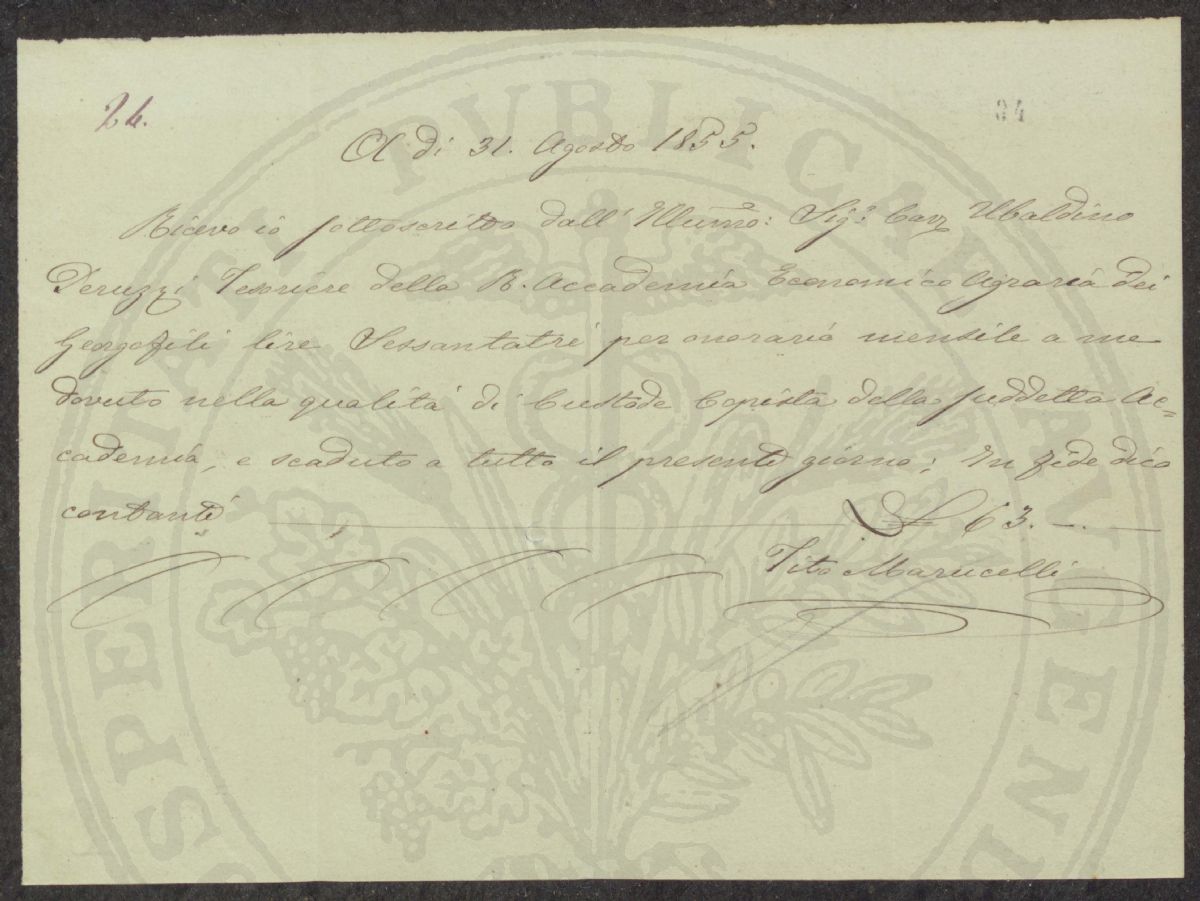 24.
34
A dì 31. Agosto 1855.
Ricevo io sottoscritto dall' Illumo: Sigr: Cavr Ubaldino
Peruzzi Tesoriere della R. Accademia Economico Agraria dei
Georgofili lire Sessantatre per onorario mensile a me
dovuto nella qualità di Custode Copista della suddetta Ac=
cademia, e scaduto a tutto il presente giorno; In fede dico
contanti ——— £ 63. —. —
Tito Marucelli
PROSPERITATI PVBLICAE AVGENDAE